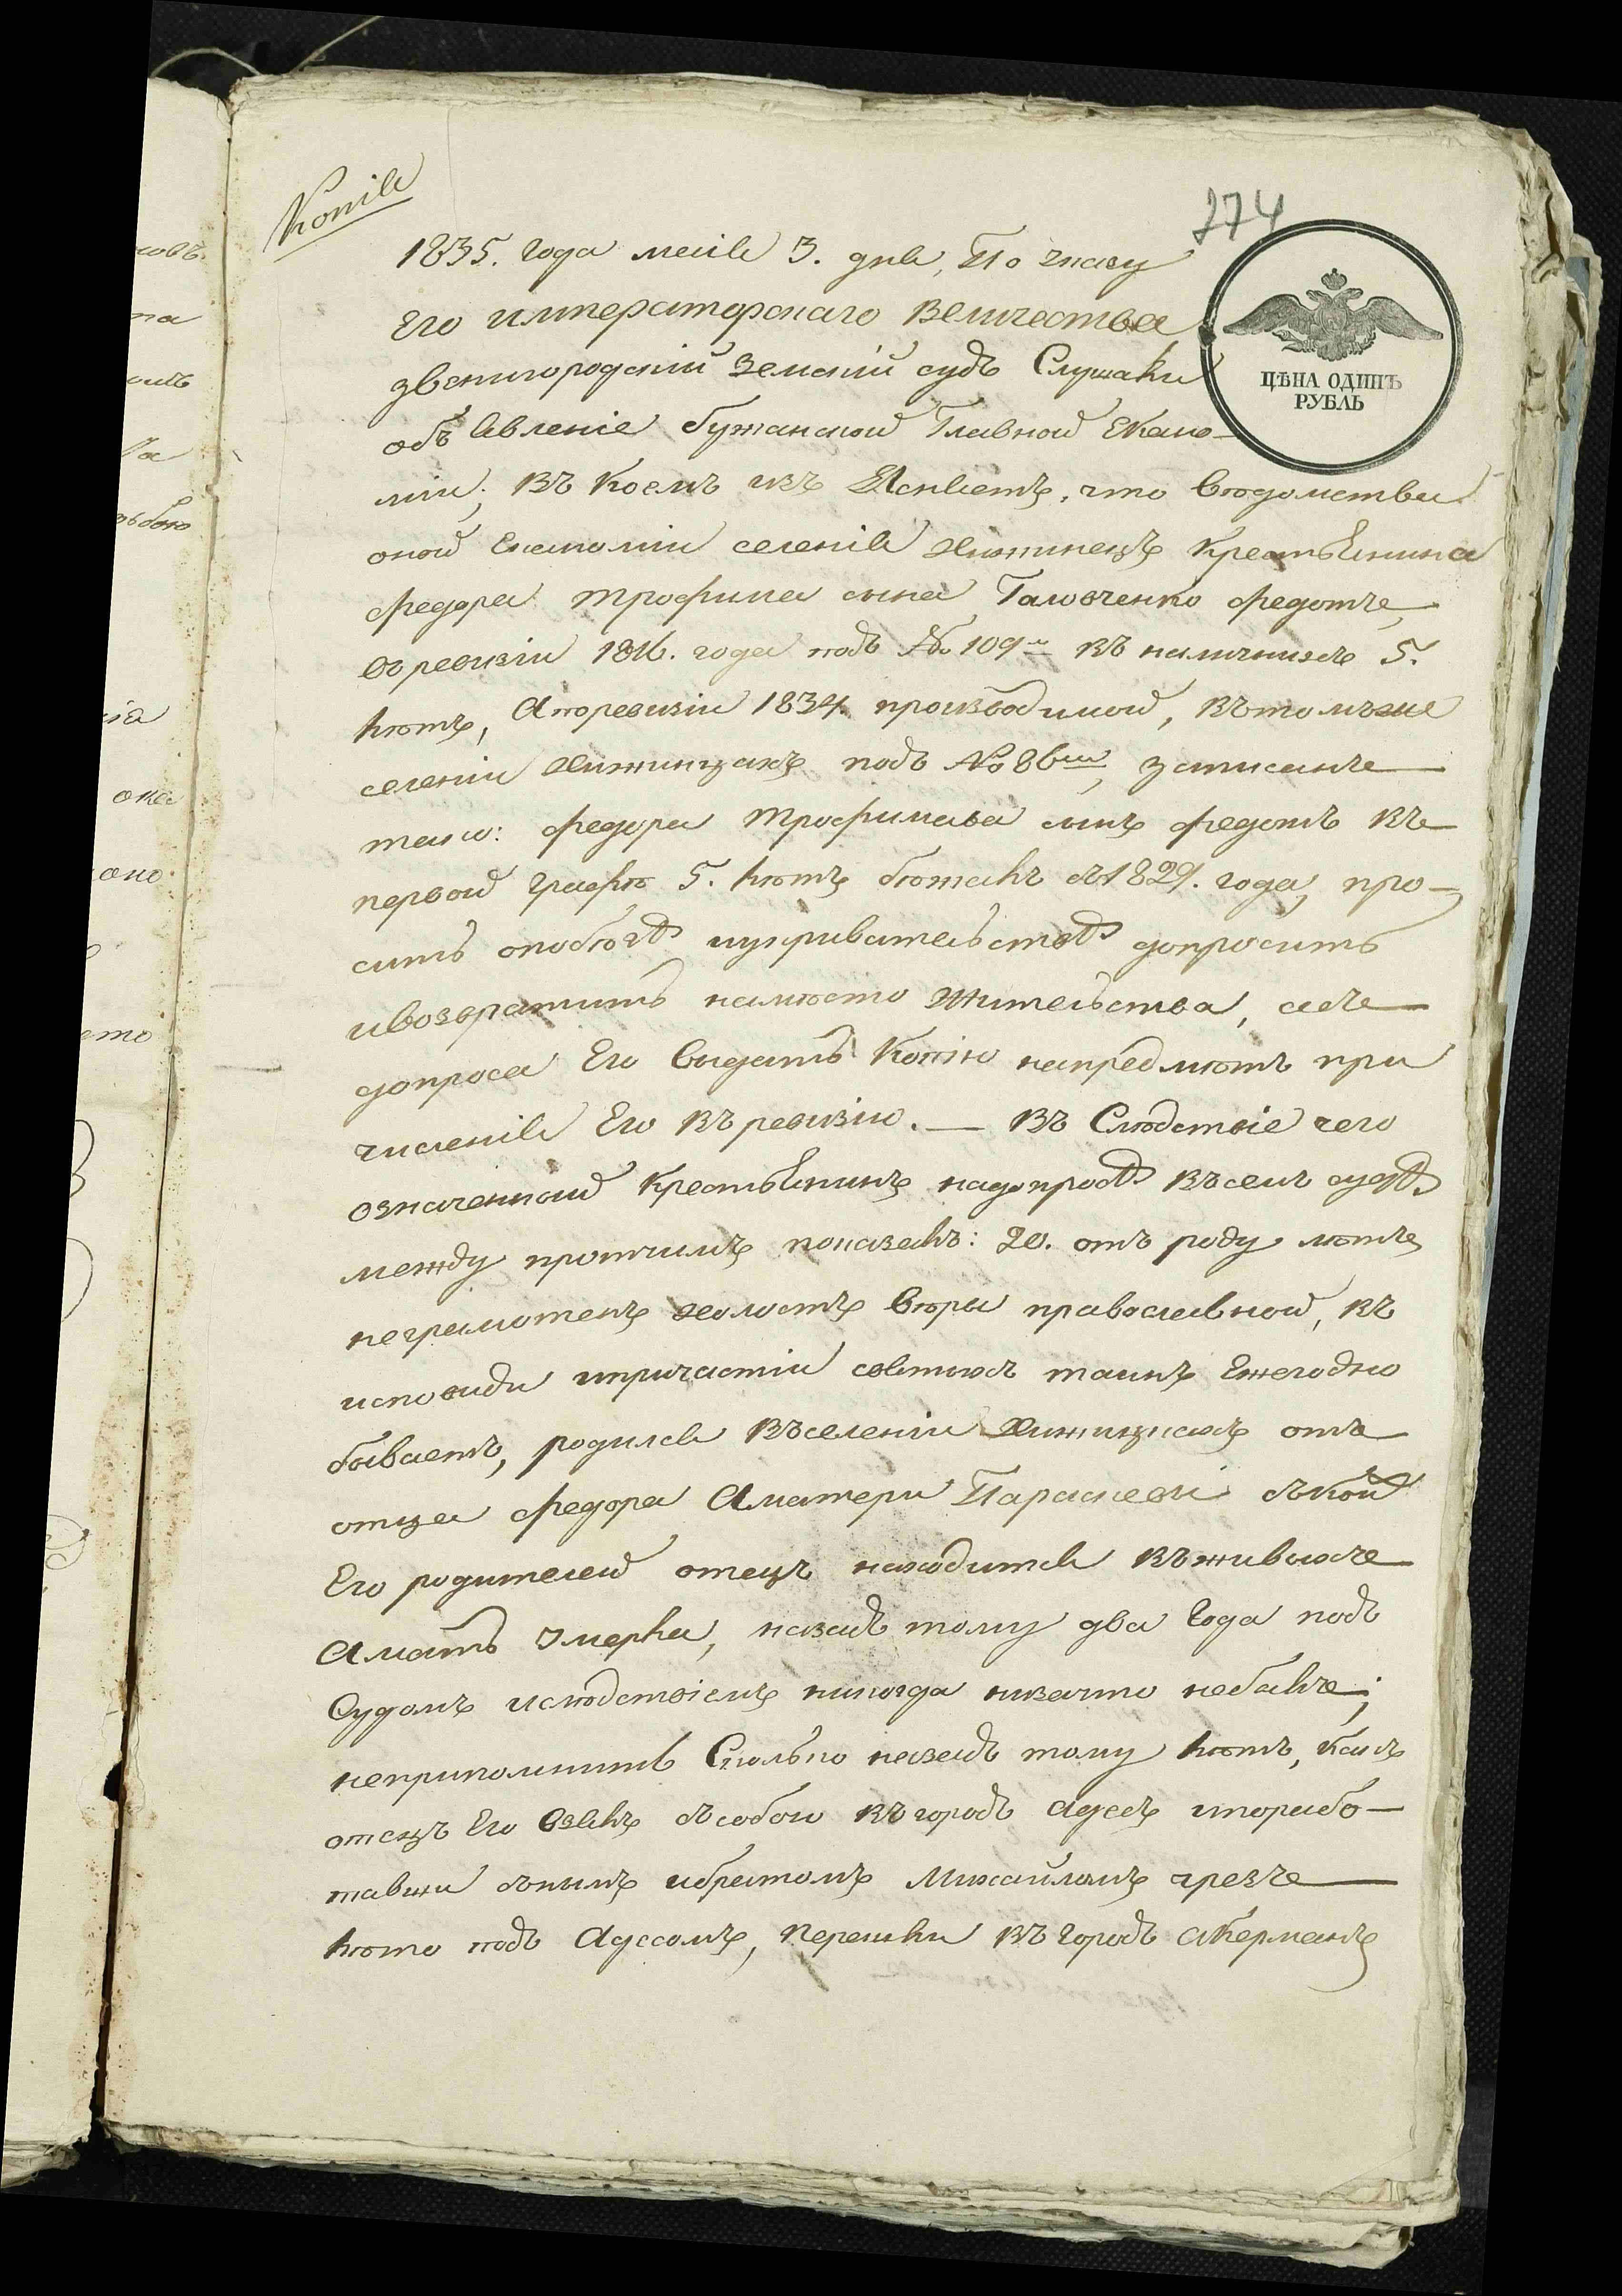 Копія
274
ЦѢНА ОДИНЪ
РУБЛЬ
1835. года маія 3. дня, По указу
Его императорскаго Величества
звенигородскій Земскій судъ Слушали
объявленіе бужанской Главной Екано-
міи; Въ коемъ изъясняетъ, что вѣдомства
оной Економіи селенія Хижинецъ крестьянина
федора трофима сына Головченко федотъ,
въ ревизіи 1816. года подъ № 109м въ наличныхъ 5.
лѣтъ, А по ревизіи 1834. производимой, въ томъ же
селеніи Хижинцахъ подъ № 86ом, записанъ
тако: федора трофимова сынъ федотъ въ
первой графѣ 5. лѣтъ бѣжалъ въ 1829. года, про-
ситъ о побѣгѣ и укривательствѣ допросить
и возвратить на мѣсто жительства, а съ
допроса Его выдать Копію на предмѣтъ при
численія Его въ ревизію. — Въ Слѣдствіе чего
означенной крестьянинъ на допросѣ въ семъ судѣ
между протчимъ показалъ: 20. отъ роду лѣтъ
неграмотенъ холостъ вѣры православной, въ
исповиди и причастіи святыхъ таинъ Ежегодно
бываетъ, родился въ селеніи Хижинцахъ отъ
отца федора А матери Параскеви съ кой
Его родителей отецъ находится въ живыхъ
А мать умерла, назадъ тому два года подъ
Судомъ и слѣдствіемъ никогда низачто небалъ;
неприпомнитъ Сколько назадъ тому лѣтъ, какъ
отецъ Его взялъ съ собою въ городъ адесъ и порабо-
тавши съ нымъ и братомъ Михайломъ чрезъ
лѣто подъ Адессомъ, перешли въ городъ Акерманъ